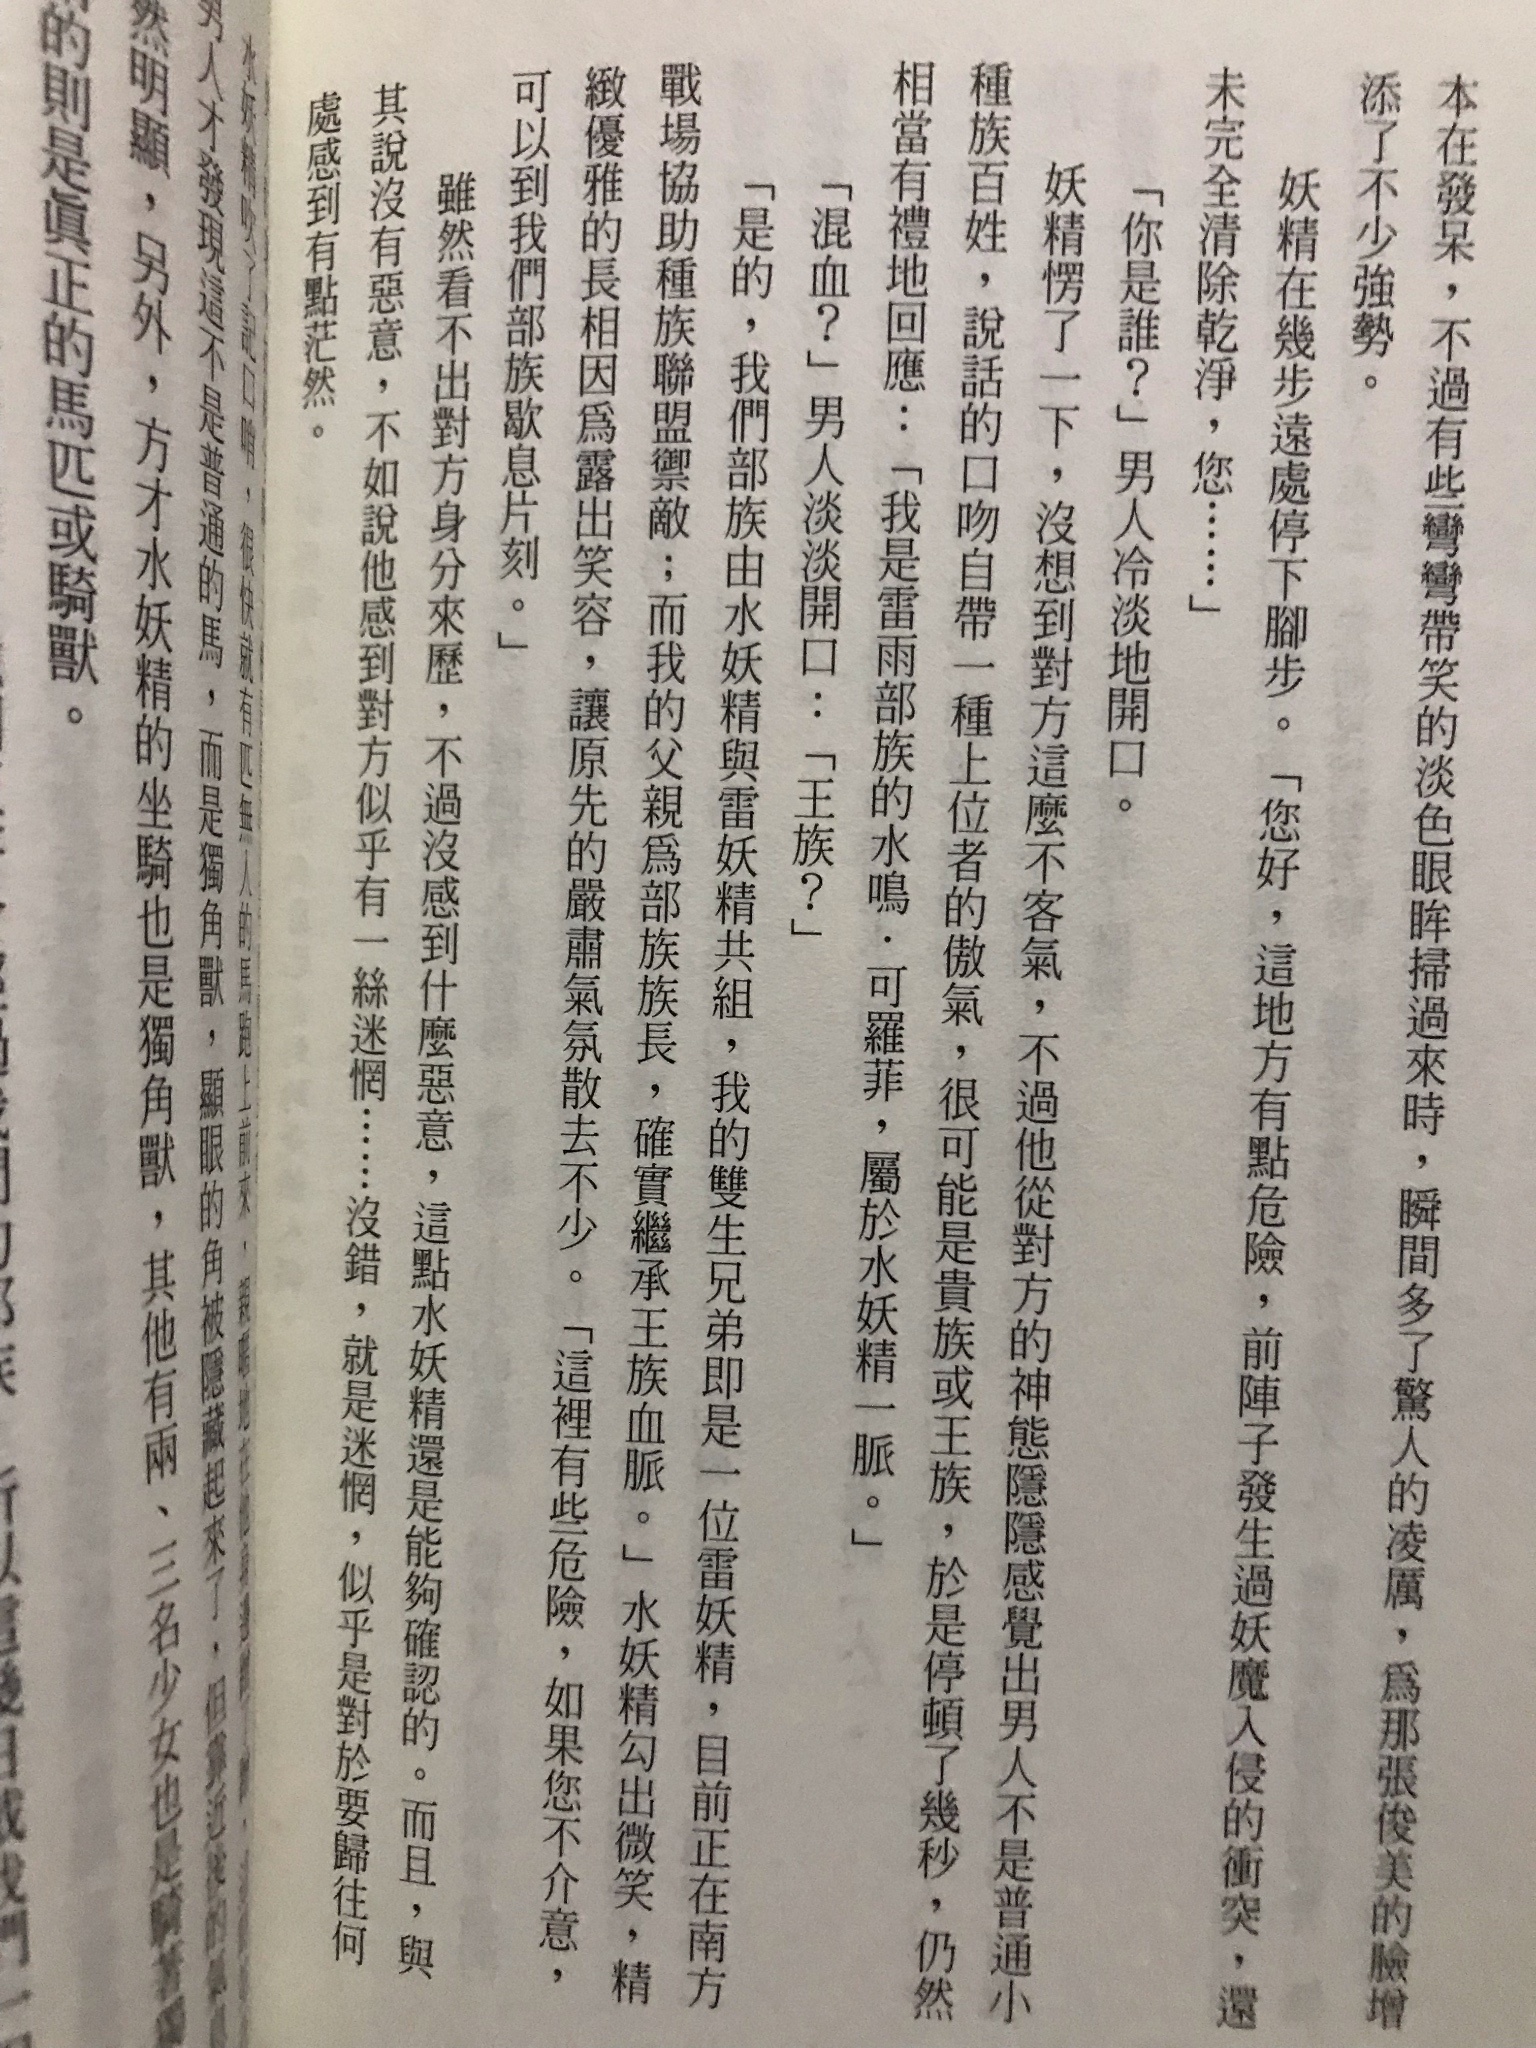 本在發呆，不過有些彎彎帶笑的淡色眼眸掃過來時，瞬間多了驚人的凌厲，爲那張俊美的臉增
添了不少強勢。
妖精在幾步遠處停下腳步。「您好，這地方有點危險，前陣子發生過妖魔入侵的衝突，還
未完全清除乾淨，您……」
「你是誰？」男人冷淡地開口。
妖精愣了一下，沒想到對方這麼不客氣，不過他從對方的神態隱隱感覺出男人不是普通小
種族百姓，說話的口吻自帶一種上位者的傲氣，很可能是貴族或王族，於是停頓了幾秒，仍然
相當有禮地回應：「我是雷雨部族的水鳴．可羅菲，屬於水妖精一脈。」
「混血？」男人淡淡開口：「王族？」
「是的，我們部族由水妖精與雷妖精共組，我的雙生兄弟即是一位雷妖精，目前正在南方
戰場協助種族聯盟禦敵；而我的父親爲部族族長，確實繼承王族血脈。」水妖精勾出微笑，精
緻優雅的長相因爲露出笑容，讓原先的嚴肅氣氛散去不少。「這裡有些危險，如果您不介意，
可以到我們部族歇息片刻。」
雖然看不出對方身分來歷，不過沒感到什麼惡意，這點水妖精還是能夠確認的。而且，與
其說沒有惡意，不如說他感到對方似乎有一絲迷惘……沒錯，就是迷惘，似乎是對於要歸往何
處感到有點茫然。
水妖精吹了記口哨，很快就有匹無人的馬跑上前來，
男人才發現這不是普通的馬，而是獨角獸，顯眼的角被隱藏起來了，但
然明顯，另外，方才水妖精的坐騎也是獨角獸，其他有兩、三名少女也是騎著獨
的則是眞正的馬匹或騎獸。